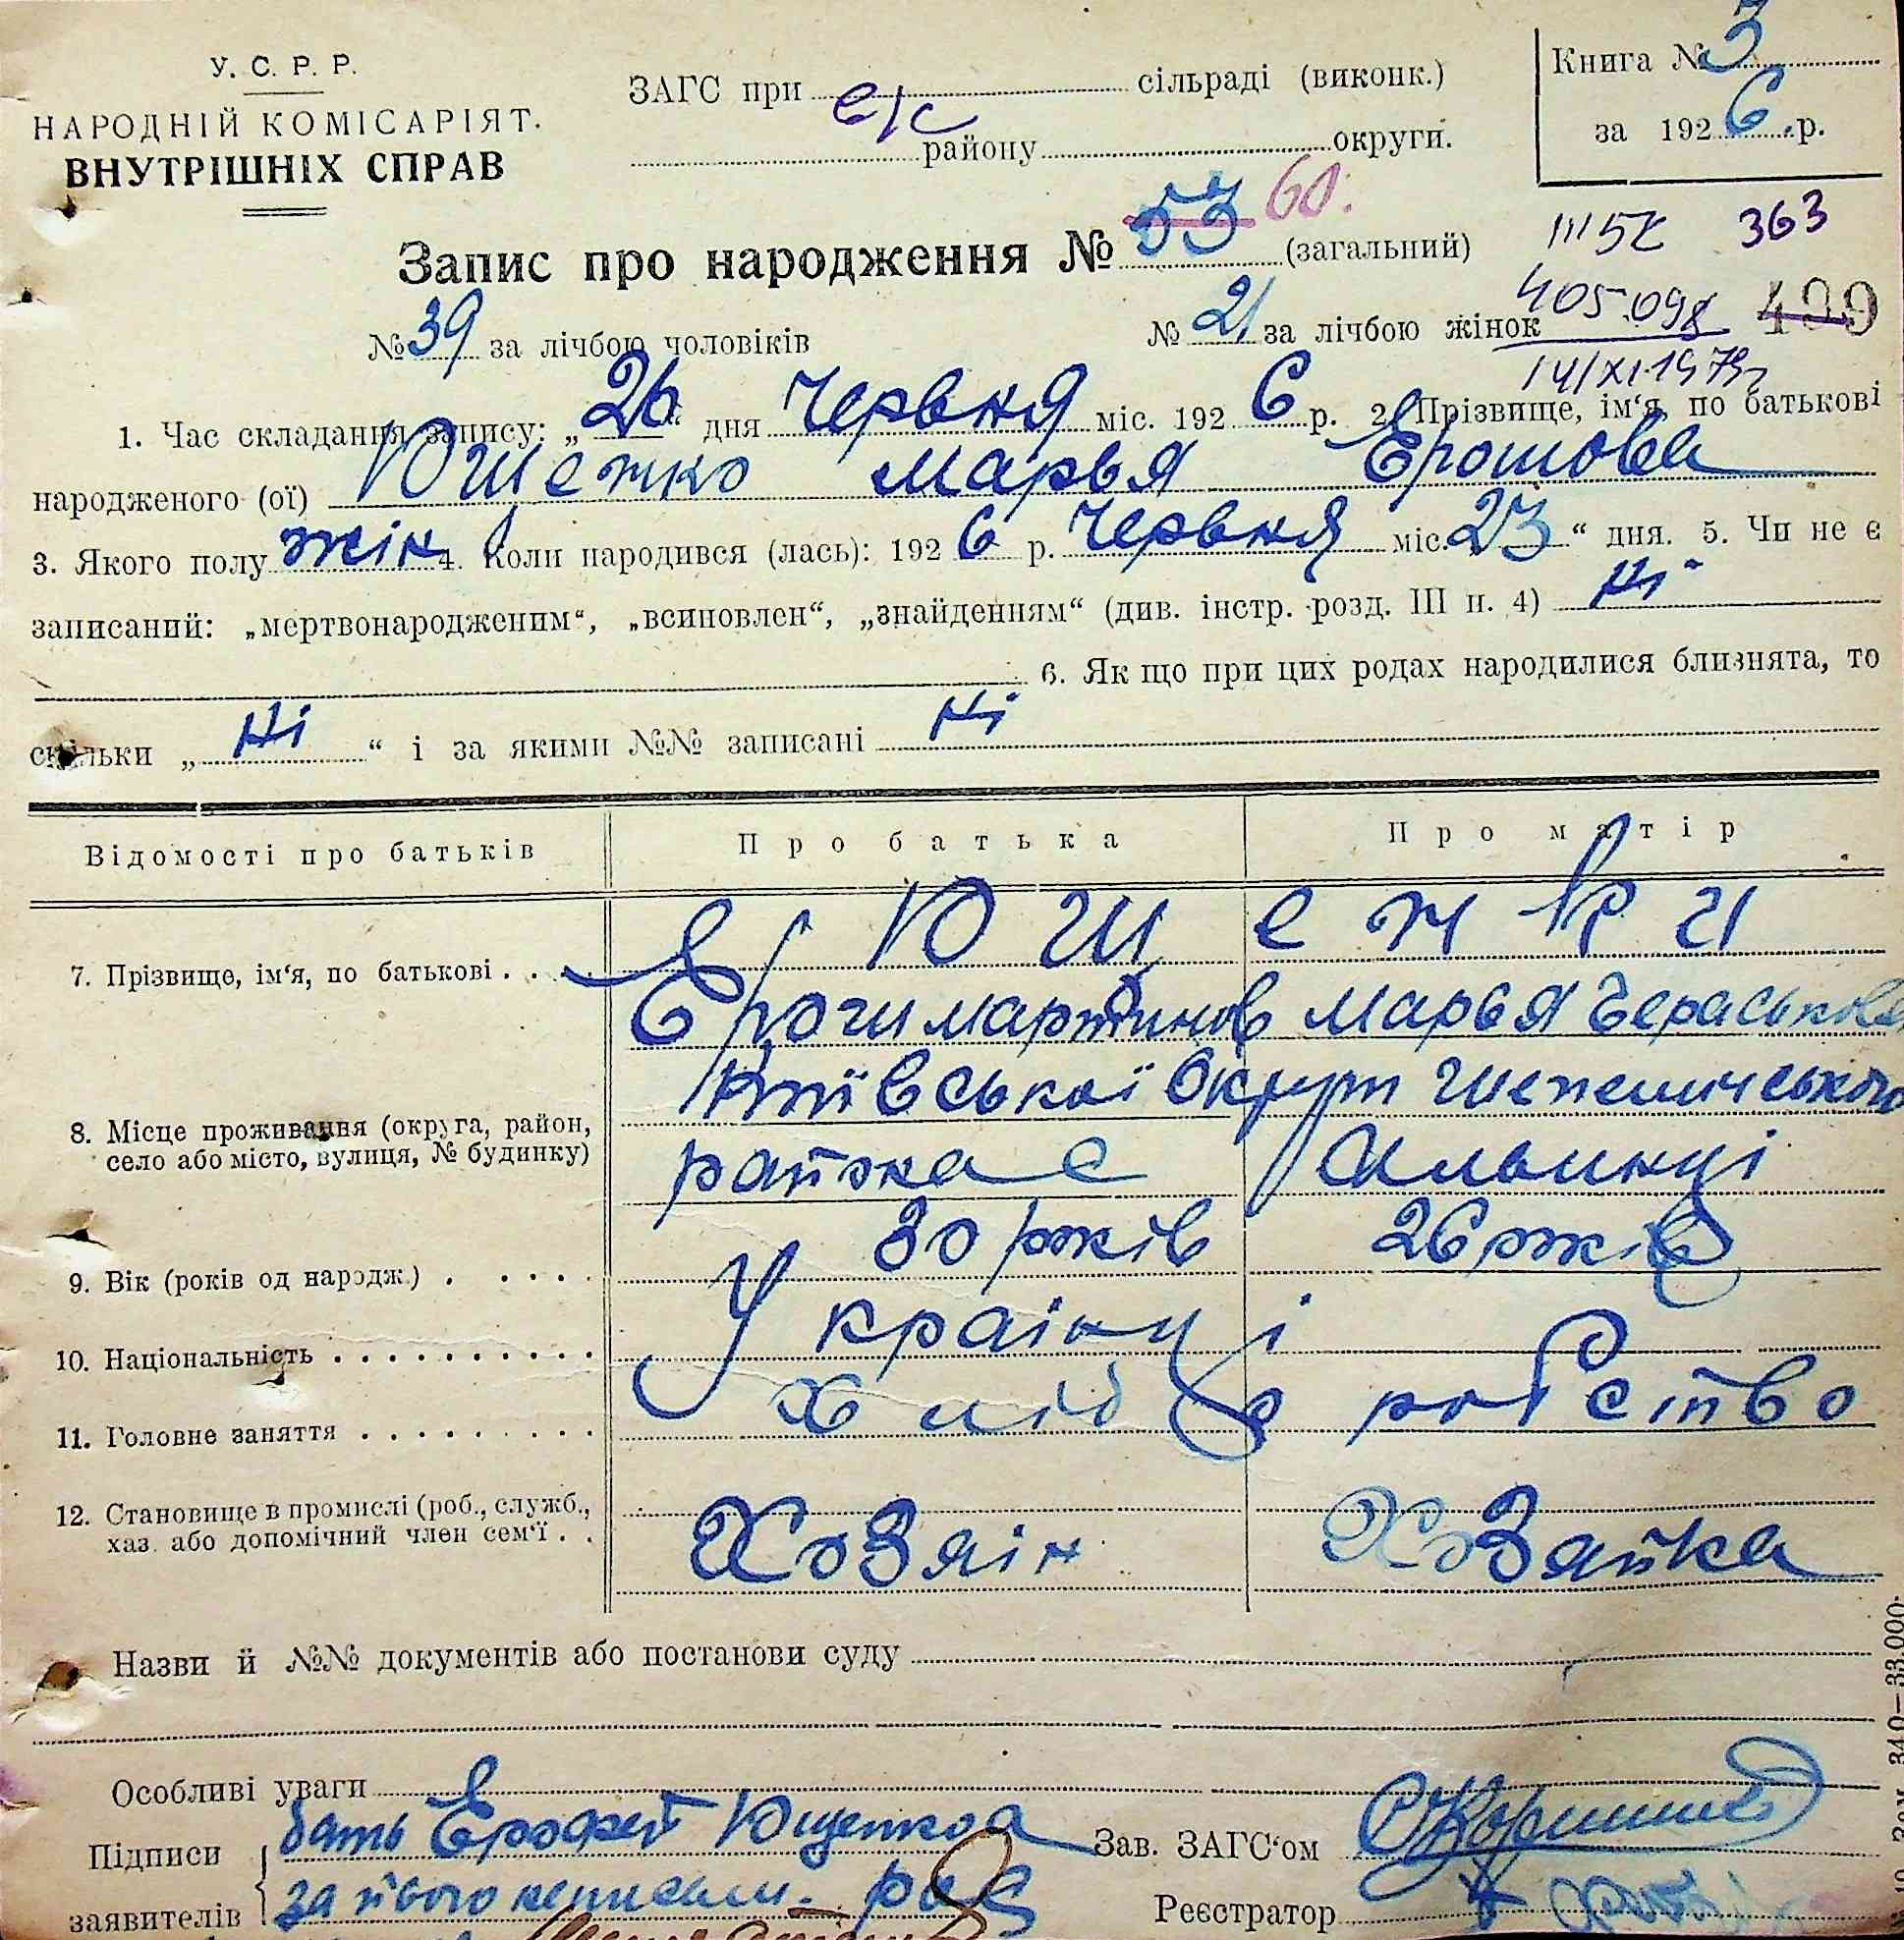 У. С. Р. Р.
НАРОДНІЙ КОМІСАРІЯТ.
ВНУТРІШНІХ СПРАВ
ЗАГС при с/с сільраді (виконк.)
району округи.
Книга № 3
за 1926 р.
Запис про народження № 53 60. (загальний)
363
№ 39 за лічбою чоловіків № 21 за лічбою жінок
405.098 499
14/XI.1979
1. Час складання запису: „26“ дня Червня міс. 1926 р. 2. Прізвище, ім‘я, по батькові
народженого (ої) Ющенко Марья Ерошова
3. Якого полу жін 4. Коли народився (лась): 1926 р. Червня міс. 23“ дня. 5. Чи не є
записаний: „мертвонародженим“, „всиновлен“, „знайденням“ (див. інстр. розд. III п. 4) Ні
6. Як що при цих родах народилися близнята, то
скільки „ Ні “ і за якими №№ записані Ні
Відомості про батьків Про батька Про матір
7. Прізвище, ім‘я, по батькові . . Ющенки
Мартинов Марья Гераськова
8. Місце проживання (округа, район, село або місто, вулиця, № будинку) Київської Округи Шепеличського
района с Ильинці
9. Вік (років од народж.) . . . . . 30 років 26 років
10. Національність . . . . . . . . . . Українці
11. Головне заняття . . . . . . . . . Хлібо робство
12. Становище в промислі (роб., служб., хаз. або допомічний член сем‘ї . . Хозяін Хозайка
Назви й №№ документів або постанови суду
Особливі уваги
Підписи заявителів
бать Ерофей Ющенко
за його
Зав. ЗАГС‘ом
Реєстратор